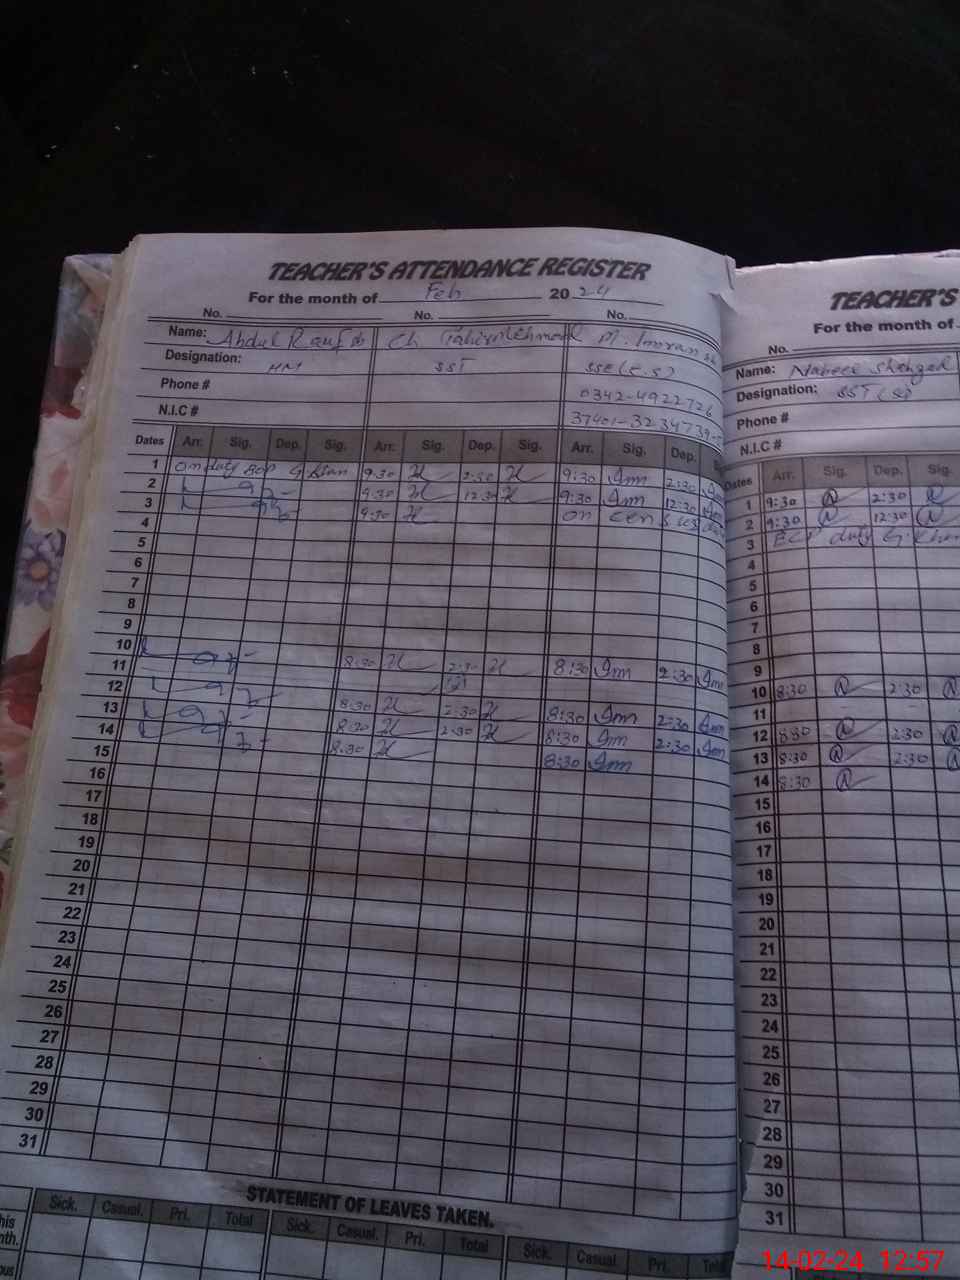 TEACHER'S ATTENDANCE REGISTER
For the month of Feb 2024
No. No. No.
Name: Abdul Rauf Ch Tahir Mehmood M. Imran
Designation: HM SST SSE(C.S)
Phone # 0342-4922726
N.I.C # 37401-3234739-
Dates Arr. Sig. Dep. Sig. Arr. Sig. Dep. Sig. Arr. Sig. Dep.
1 on duty G Khan 9:30 2:30 9:30 Imn 2:30
2 9:30 12:30 9:30 Imn 12:30
3 9:30 on census duty
4
5
6
7
8
9
10 8:30 2:30 8:30 Imn 2:30 Imn
11
12 8:30 2:30 8:30 Imn 2:30 Imn
13 8:30 2:30 8:30 Imn 2:30 Imn
14 8:30 8:30 Imn
15
16
17
18
19
20
21
22
23
24
25
26
27
28
29
30
31
STATEMENT OF LEAVES TAKEN.
Sick. Casual. Pri. Total Sick. Casual. Pri. Total Sick. Casual. Pri.
TEACHER'S
For the month of
No.
Name: Nabeel Shehzad
Designation: SST
Phone #
N.I.C #
Dates Arr. Sig. Dep. Sig.
1 9:30 2:30
2 9:30 12:30
3 duty G. Khan
4
5
6
7
8
9
10 8:30 2:30
11
12 8:30 2:30
13 8:30 2:30
14 8:30
15
16
17
18
19
20
21
22
23
24
25
26
27
28
29
30
31
14-02-24 12:57